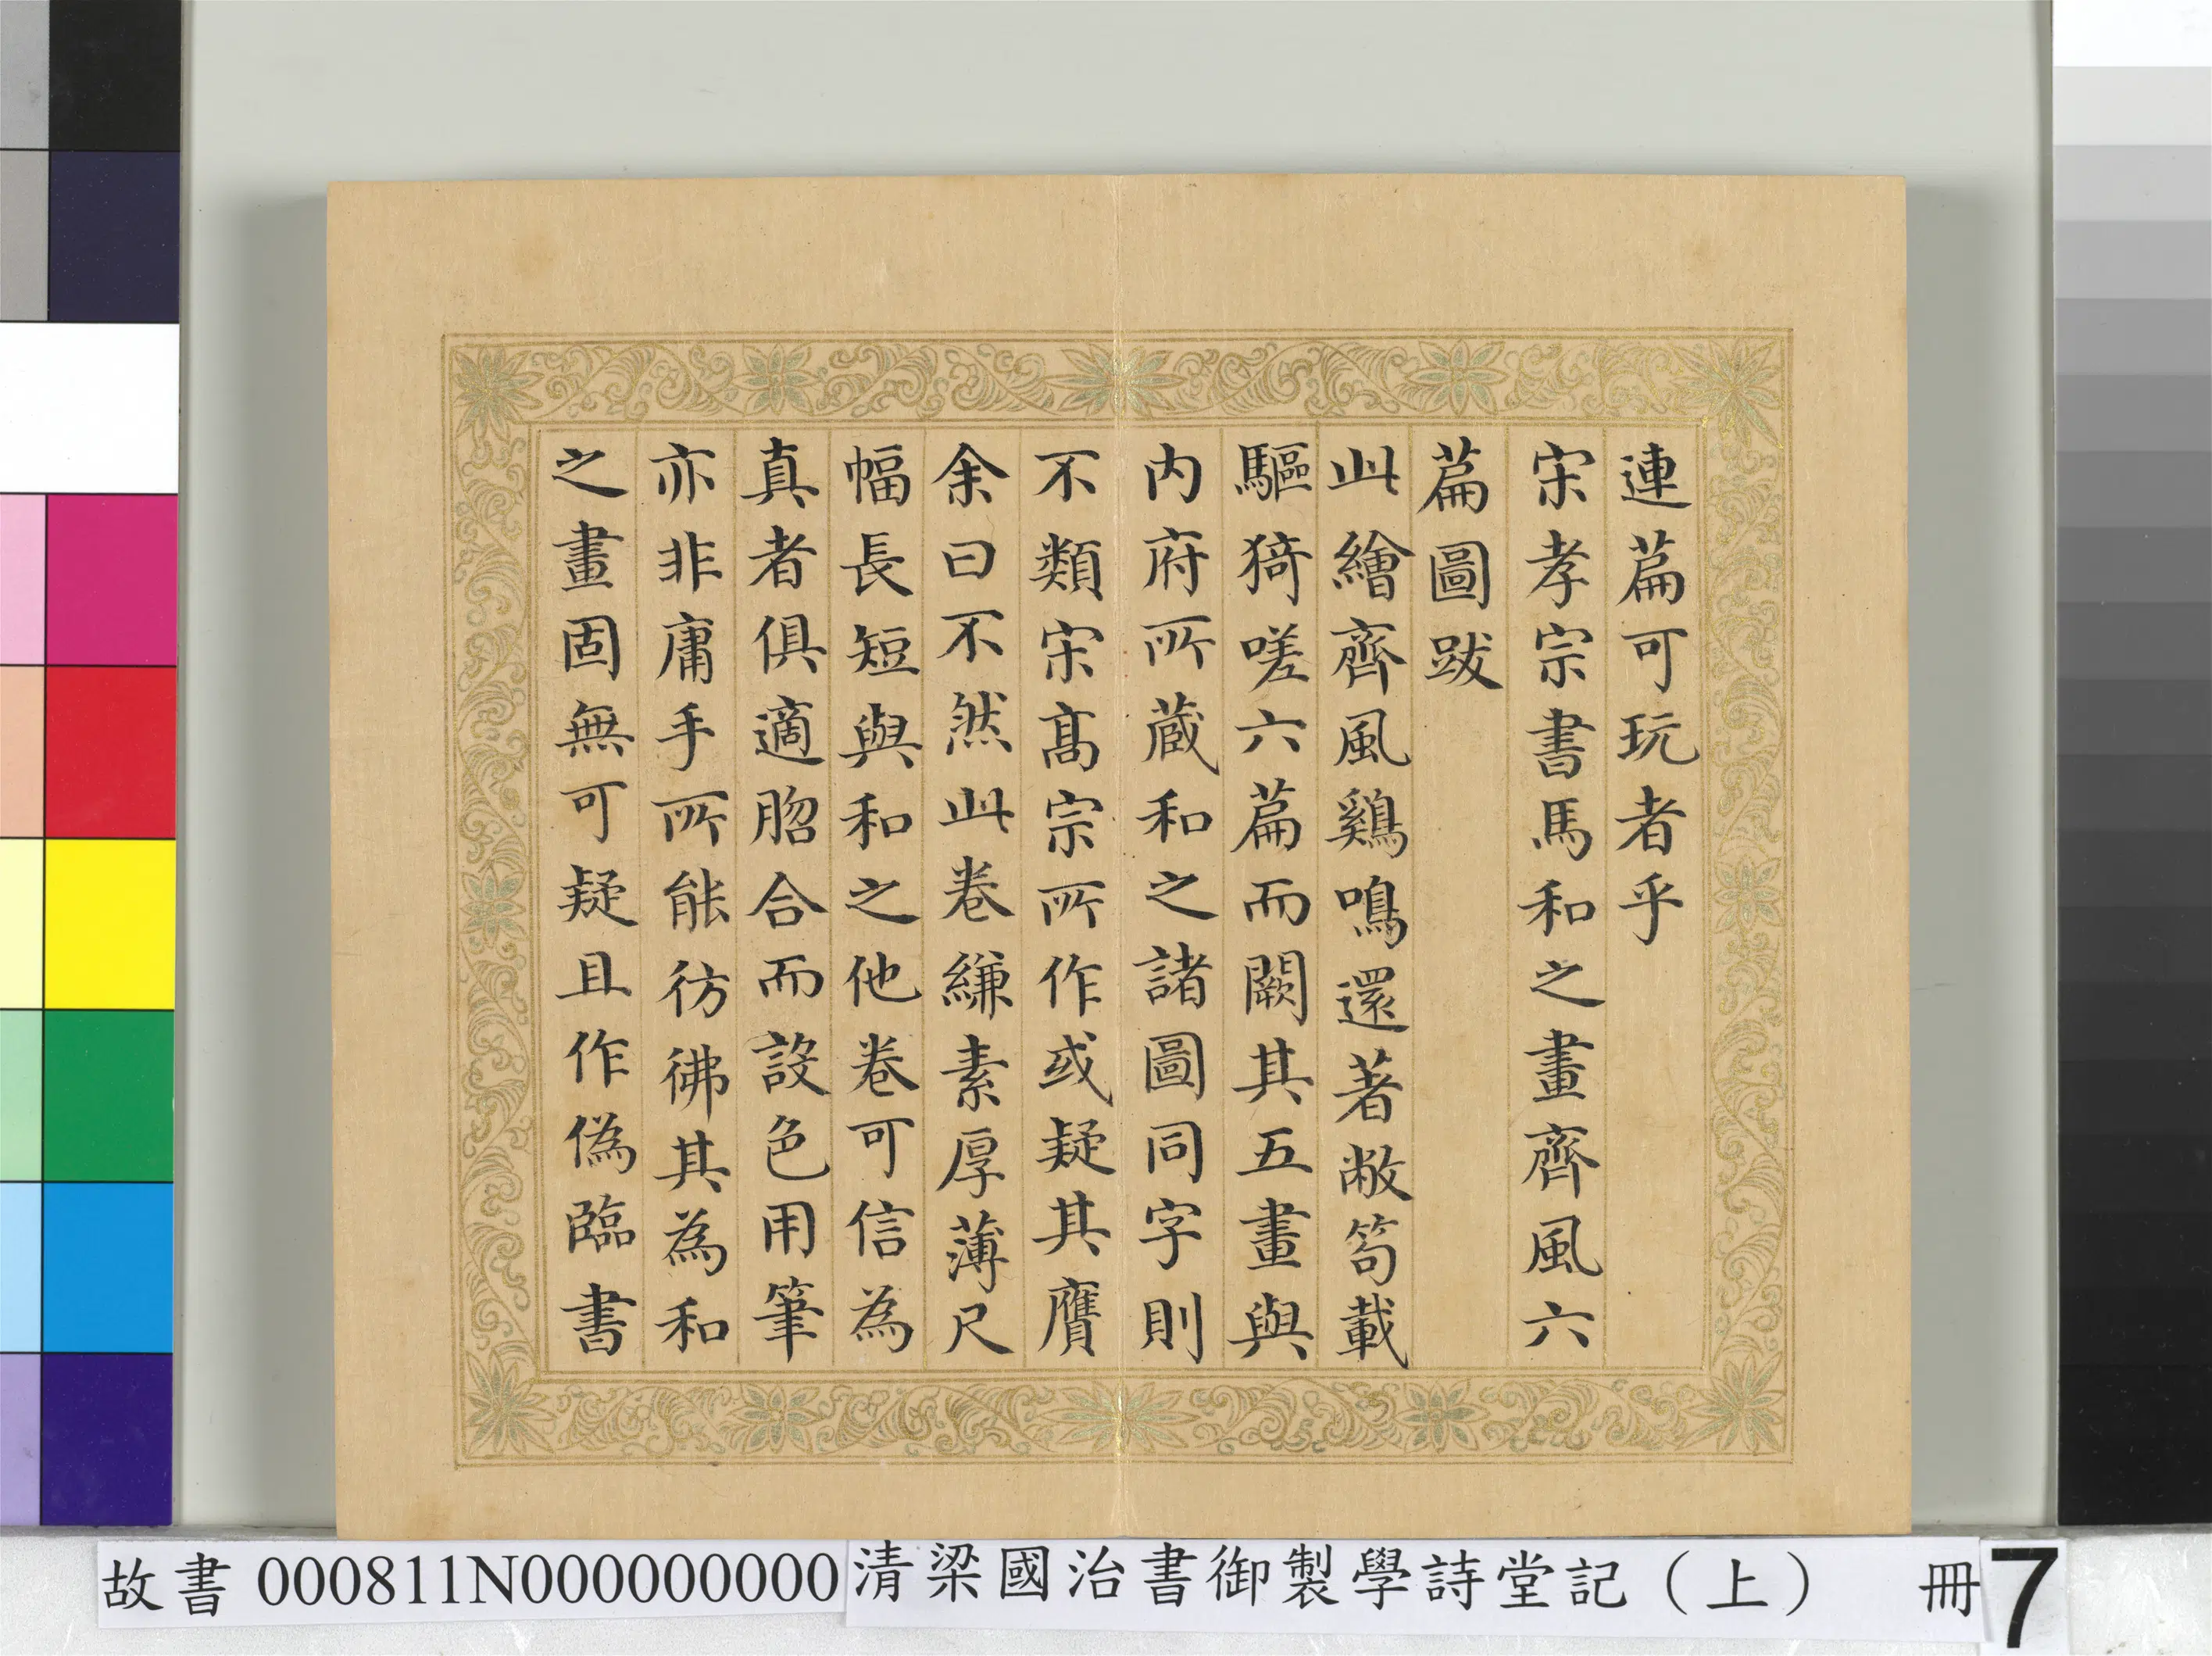 連篇可玩者乎
宋孝宗書馬和之畫齊風六
篇圖跋
此繪齊風鷄鳴還著敝笱載
驅猗嗟六篇而闕其五畫與
内府所蔵和之諸圖同字則
不類宋髙宗所作或疑其贗
余曰不然此卷縑素厚薄尺
幅長短與和之他卷可信為
真者俱適脗合而設色用筆
亦非庸手所能彷彿其為和
之畫固無可疑且作偽臨書
故書 000811N000000000 清梁國治書御製學詩堂記（上） 冊 7